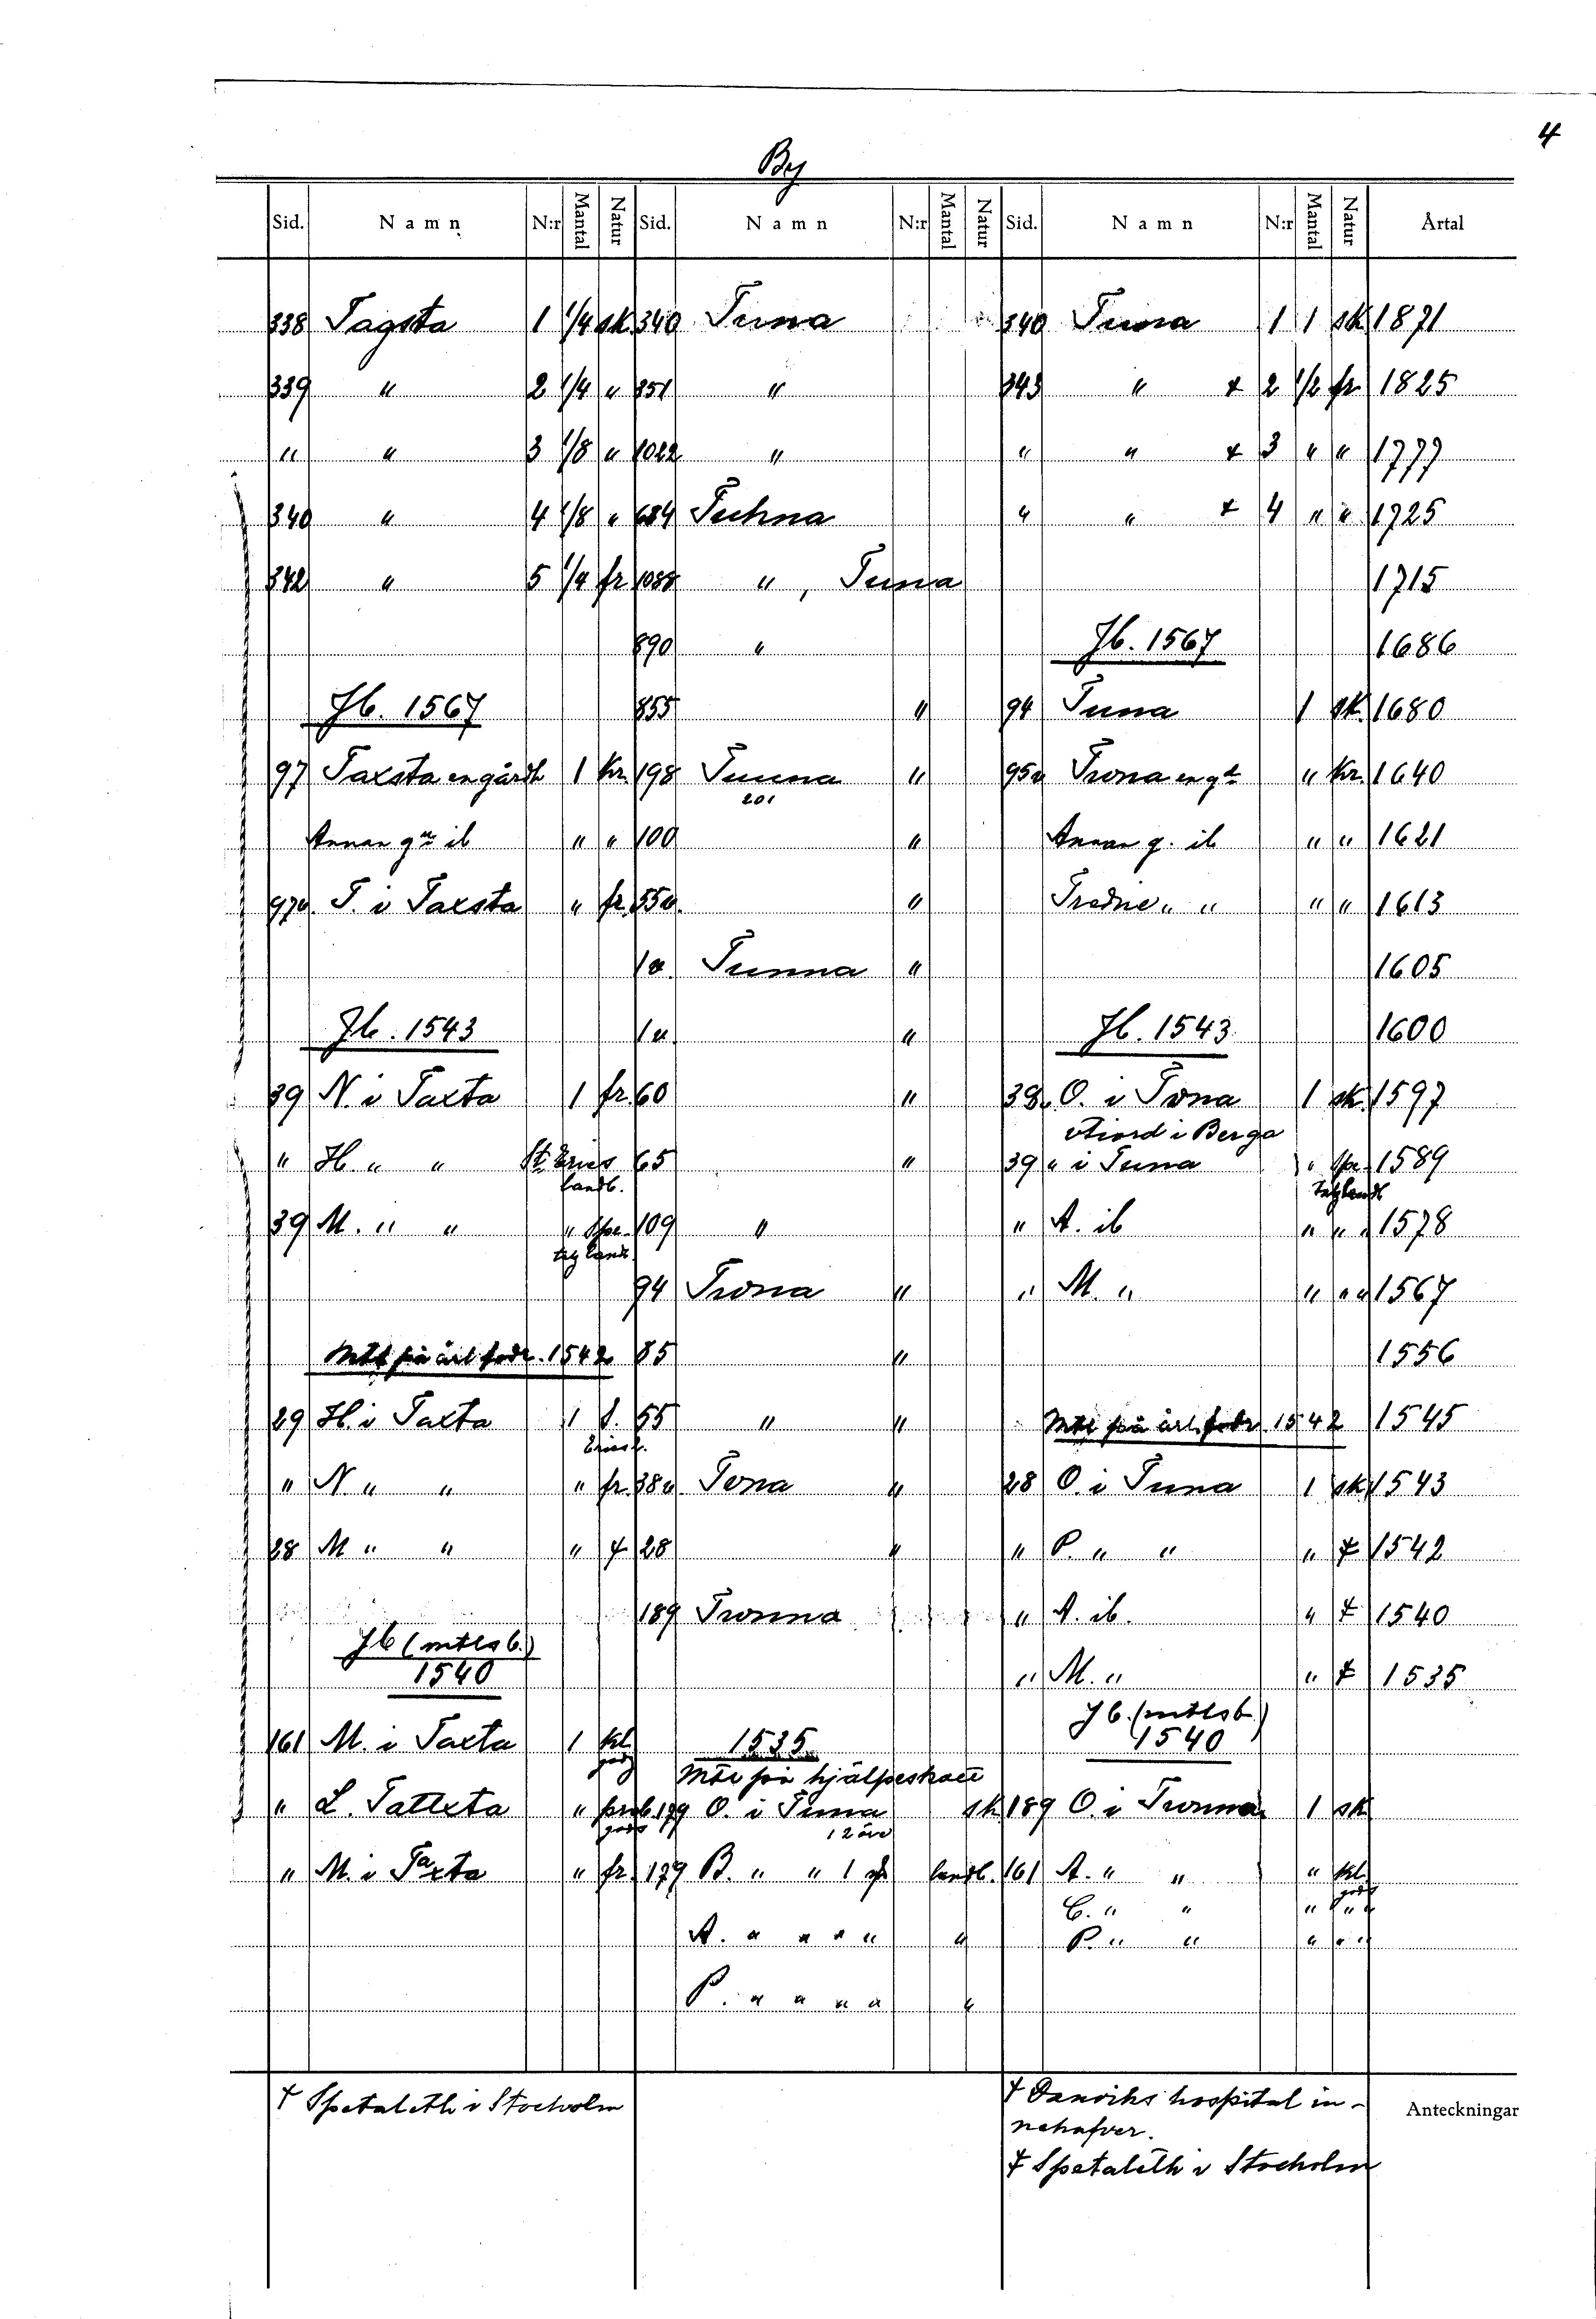 4
By
Sid. Namn N:r Mantal Natur Sid. Namn N:r Mantal Natur Sid. Namn N:r Mantal Natur Årtal
338 Tagsta 1 1/4 sk. 340 Tuna 340 Tuna 1 1 sk 1871
339 " 2 1/4 " 351 " 343 " + 2 1/2 fr. 1825
" " 3 1/8 " 1022 " " " + 3 " " 1777
340 " 4 1/8 " 684 Tuhna " " + 4 " " 1725
342 " 5 1/4 fr. 1088 " , Tuna 1715
890 " Jb. 1567 1686
Jb. 1567 855 " 94 Tuna 1 sk. 1680
97 Taxsta en gårdh 1 kr. 198 Tunna " 95v Twna en gd " kr. 1640
201
Annan gn ib " " 100 " Annan g. ib " " 1621
97v. T. i Taxsta " fr. 55v. " Tredne " " " " 1613
1v. Tunna " 1605
Jb. 1543 1v. " Jb. 1543 1600
39 N. i Taxta 1 fr. 60 " 38v O. i Tona 1 sk. 1597
i Berga
" H. " " St Erics 65 " 39 " i Tuna " Spe. 1589
landb. landb
39 M. " " " Spe. 109 " " A. ib " " " 1578
landb.
94 Twna " " M. " " " " 1567
Mtl på årl. fodr. 1542 85 " 1556
29 H. i Taxta 1 S. 55 " " Mtl på årl. fodr. 1542 1545
Erics l.
" N " " " fr. 38v Tona " 28 O. i Tuna 1 sk 1543
28 M " " " + 28 " " P. " " " ‡ 1542
189 Twnna " A. ib. " ‡ 1540
Jb (mtlsb.)
1540 " M. " " ‡ 1535
Jb. (mtlsb.)
161 M. i Taxta 1 kl. 1535 1540
godz Mtl på hjälpeskatt
" L. Tattxta " prb. 179 O. i Tuna sk 189 O. i Twnna 1 sk
gods 12 öre
" M. i Taxta " fr. 179 B. " " 1 landb. 161 A. " " " kl.
godz
C. " " " " "
A. " " " " " P. " " " " "
P. " " " " "
+ Spetaleth i Stocholm
+ Danviks hospital in-
nehafver.
‡ Spetaleth i Stocholm
Anteckningar